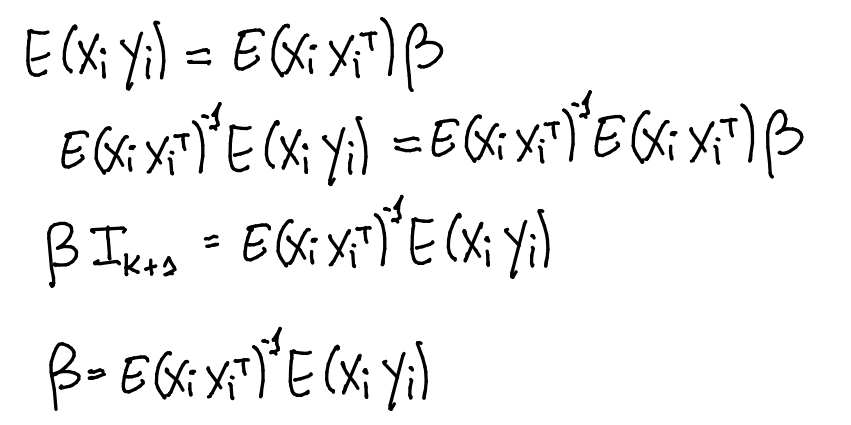 E(xᵢ yᵢ) = E(xᵢ xᵢᵀ)β
E(xᵢ xᵢᵀ)⁻¹ E(xᵢ yᵢ) = E(xᵢ xᵢᵀ)⁻¹ E(xᵢ xᵢᵀ)β
β I_{K+1} = E(xᵢ xᵢᵀ)⁻¹ E(xᵢ yᵢ)
β = E(xᵢ xᵢᵀ)⁻¹ E(xᵢ yᵢ)